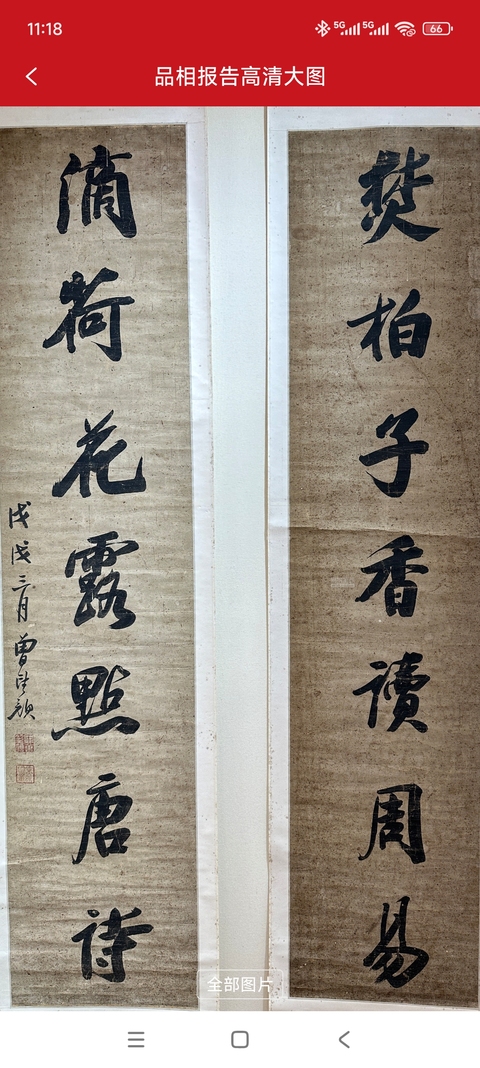 11:18
5G 5G 66
品相报告高清大图
焚柏子香讀周易
滴荷花露點唐詩
戊戌三月曾望顏
全部图片